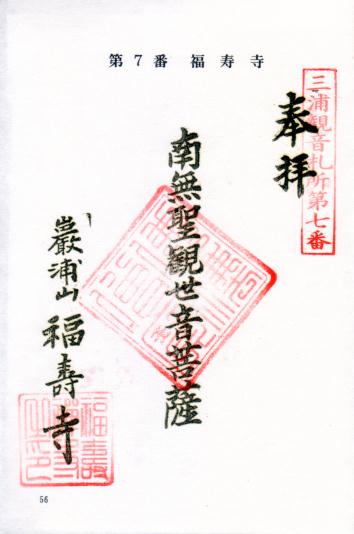 第7番 福寿寺
三浦観音札所第七番
奉拝
南無聖観世音菩薩
巖浦山 福壽寺
56